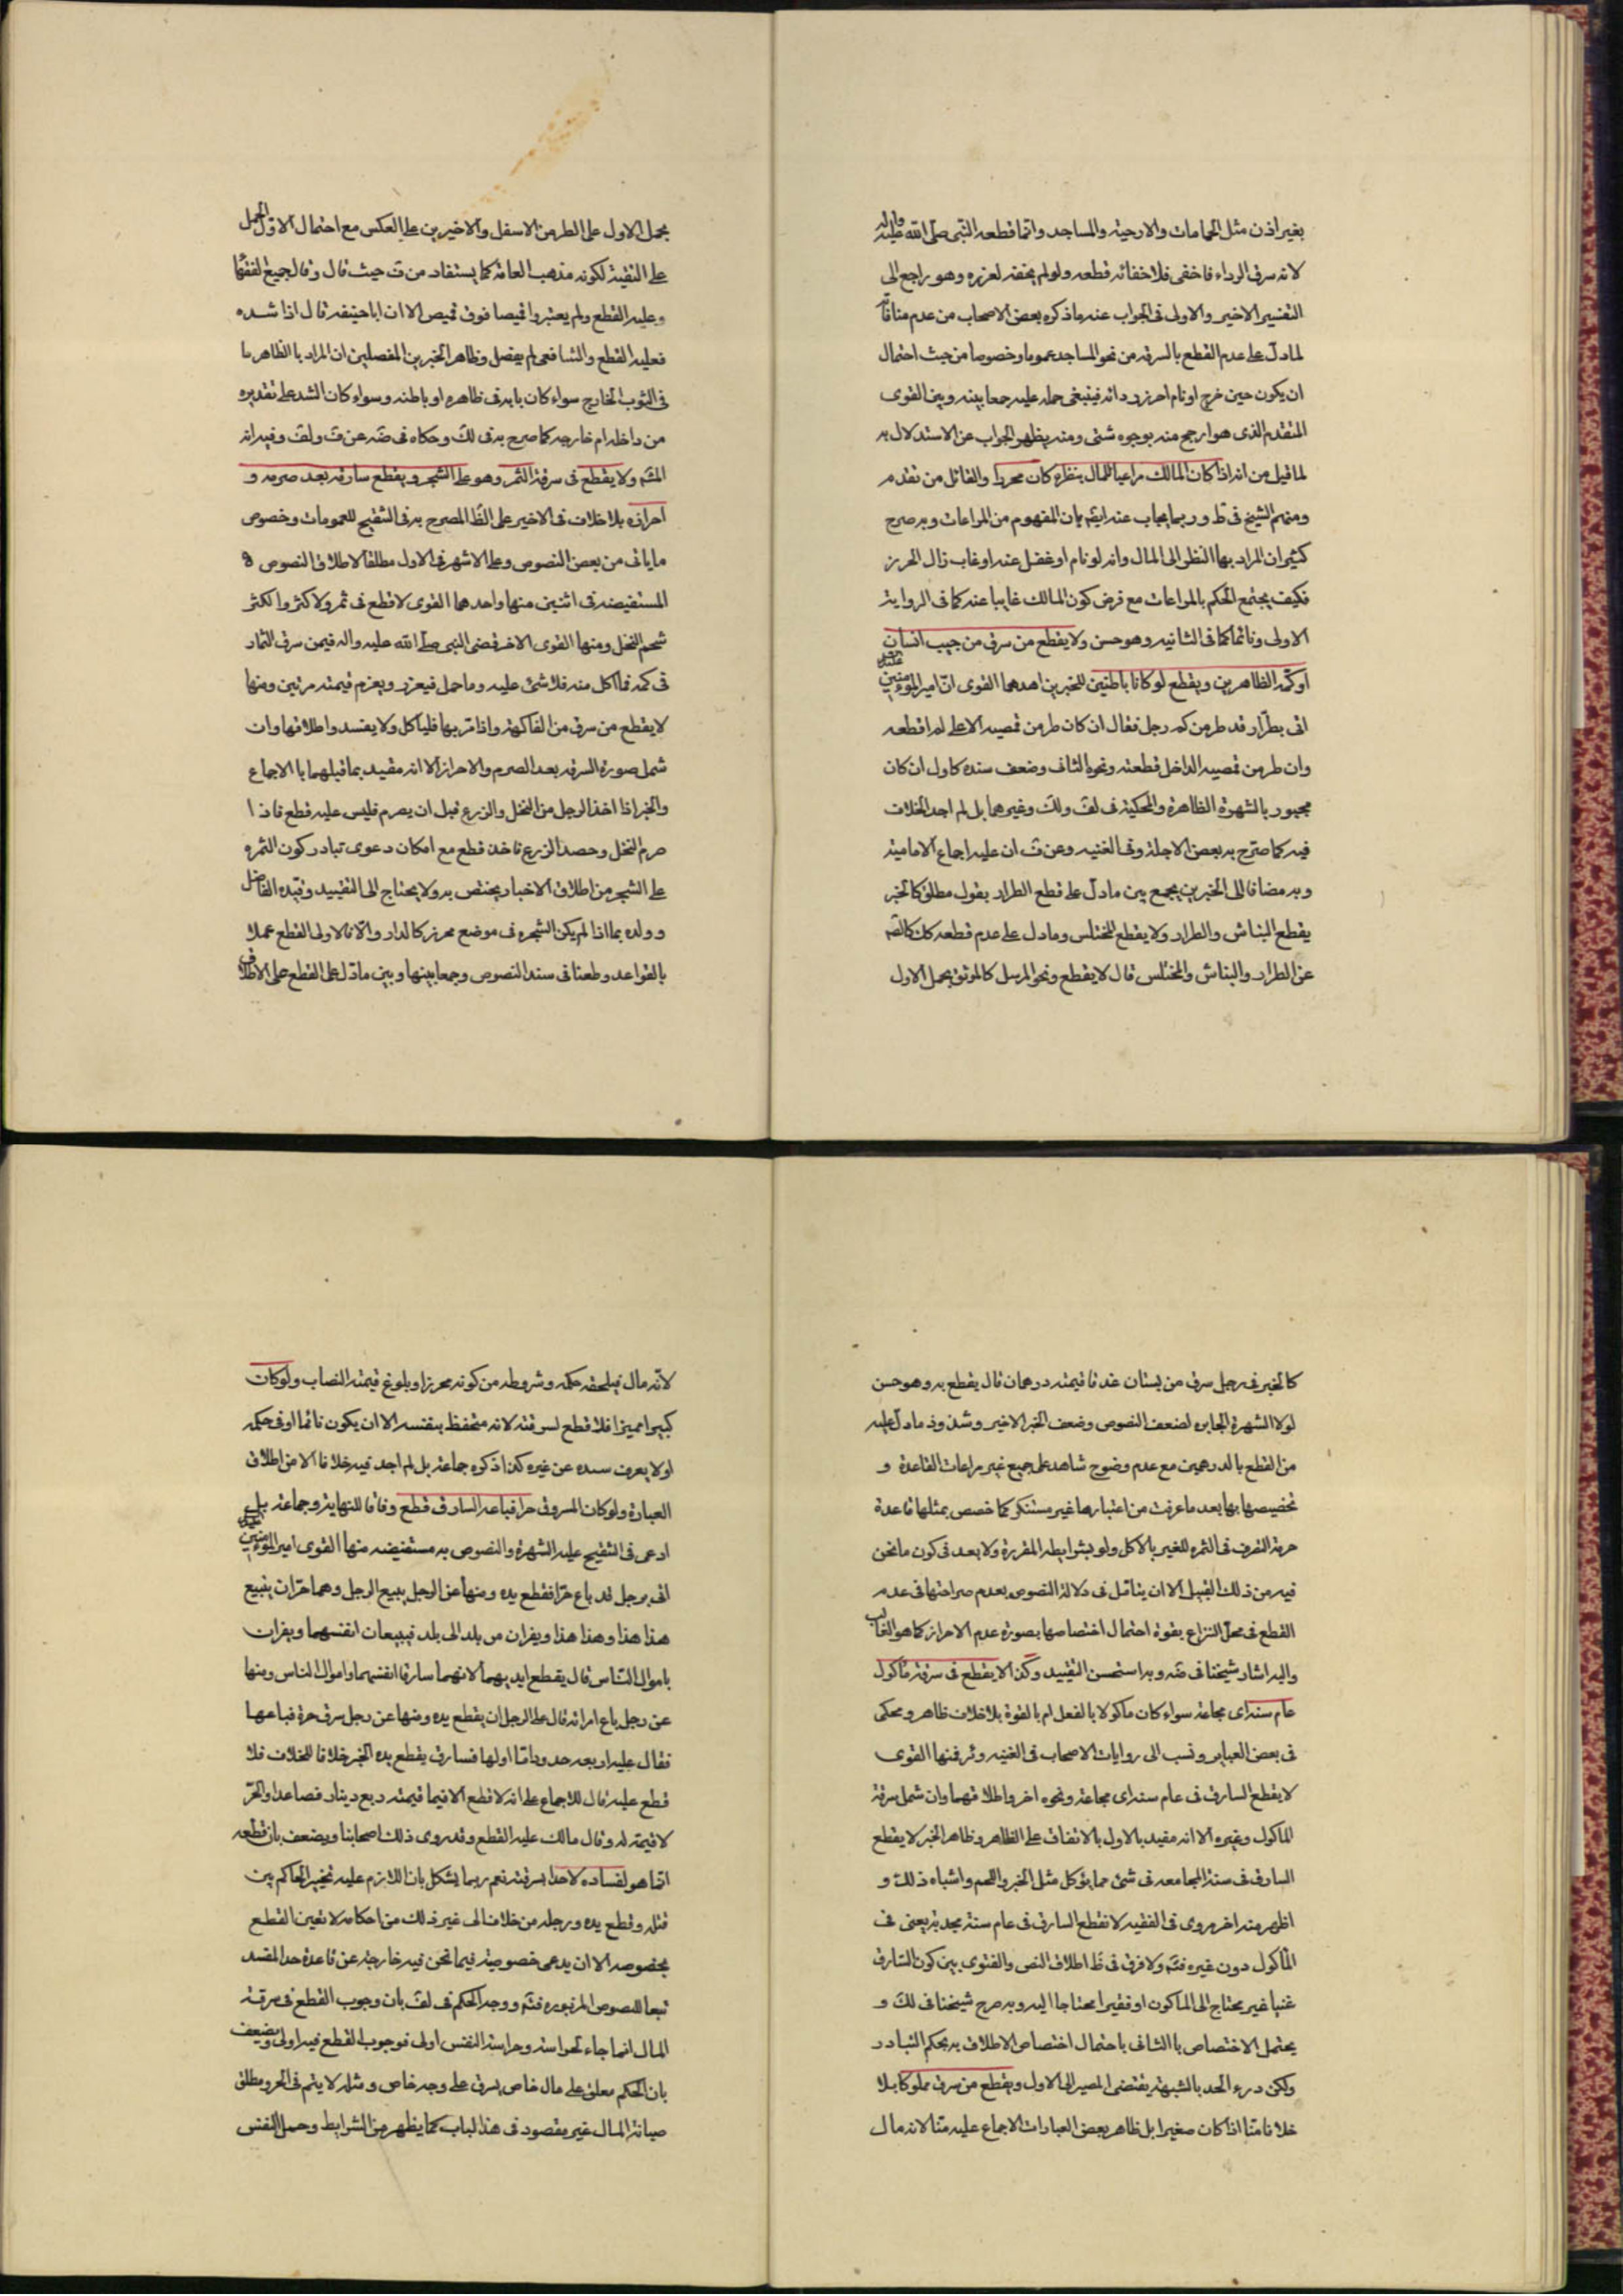 بغير اذن مثل الحمامات والارحية والمساجد وانما قطعه النبى صلى الله عليه واله
لانه سرق الرداء فاخفى فلاخفائه قطعه ولو لم يخفه لعزره وهو راجع الى
التفسير الاخير والاولى فى الجواب عنه ماذكره بعض الاصحاب من عدم منافاته
لما دل على عدم القطع بالسرقه من نحو المساجد عموما وخصوصا من حيث احتمال
ان يكون حين خرج او نام احرز ردائه فينبغى حمله عليه جمعا بينه وبين القوى
المتقدم الذى هو ارجح منه بوجوه شتى ومنه يظهر الجواب عن الاستدلال به
لما قيل من انه اذا كان المالك مراعيا للمال بنظره كان محرزا والقائل من تقدم
ومنهم الشيخ فى ط وربما يجاب عنه ايضا بان المفهوم من المراعات وبه صرح
كثير ان المراد بها النظر الى المال وانه لو نام او غفل عنه او غاب زال الحرز
فكيف يجتمع الحكم بالمراعات مع فرض كون المالك غايبا عنه كما فى الرواية
الاولى ونائما كما فى الثانيه وهو حسن ولا يقطع من سرق من جيب انسان
او كمه الظاهرين ويقطع لو كانا باطنين للخبرين احدهما القوى ان امير المؤمنين عليه السلام
اتى بطرار قد طر من كم رجل فقال ان كان طر من قميصه الاعلى لم اقطعه
وان طر من قميصه الداخل قطعته ونحوه الثانى وضعف سنده كاول ان كان
مجبور بالشهرة الظاهرة والمحكية فى لف ولك وغيرهما بل لم اجد الخلاف
فيه كما صرح به بعض الاجلة وفى الغنيه وعن ف ان عليه اجماع الامامية
وبه مضافا الى الخبرين يجمع بين ما دل على قطع الطرار بقول مطلق كالخبر
يقطع النباش والطرار ولا يقطع المختلس وما دل على عدم قطعه كك كالصم
عن الطرار والنباش والمختلس قال لا يقطع ونحو المرسل كالموثق بحمل الاول
بحمل الاول على الطر من الاسفل والاخيرين على العكس مع احتمال الاول الحمل
على التقية لكونه مذهب العامة كما يستفاد من ف حيث قال وقال جميع الفقهاء
وعليه القطع ولم يعتبروا قميصا فوق قميص الا ان اباحنيفه قال اذا شده
فعليه القطع والشافعى لم يفصل وظاهر الخبرين المفصلين ان المراد بالظاهر ما
فى الثوب الخارج سواء كان بابه فى ظاهره او باطنه وسواء كان الشد على تقديره
من داخله ام خارجه كما صرح به فى لك وحكاه فى ضه عن ف ولف وفيه انه
المشم ولا يقطع فى سرقة الثمر وهو على الشجر ويقطع سارقه بعد صرمه و
احرازه بلا خلاف فى الاخير على الظ المصرح به فى التنقيح للعمومات وخصوص
ماياتى من بعض النصوص وعلى الاشهر فى الاول مطلقا لاطلاق النصوص
المستفيضه فى اثنين منها واحدهما القوى لا قطع فى ثمر ولا كثر والكثر
شحم النخل ومنها القوى الاخر قضى النبى صلى الله عليه واله فيمن سرق الثمار
فى كمه فما اكل منه فلا شئ عليه وما حمل فيعزر ويغرم قيمته مرتين ومنها
لا يقطع من سرق من الفاكهة واذا مر بها فلياكل ولا يفسد واطلاقها وان
شمل صورة السرقه بعد الصرم والاحراز الا انه مقيد بما قبلهما بالاجماع
والخبر اذا اخذ الرجل من النخل والزرع قبل ان يصرم فليس عليه قطع فاذا
صرم النخل وحصد الزرع فاخذ قطع مع امكان دعوى تبادر كون الثمره
على الشجر من اطلاق الاخبار فيختص به ولا يحتاج الى التقييد وقيده الفاضل
وولده بما اذا لم يكن الشجره فى موضع محرز كالدار والا فالاولى القطع عملا
بالقواعد وطعنا فى سند النصوص وجمعا بينها وبين ما دل على القطع على الاطلاق
كالخبر فى رجل سرق من بستان عذقا قيمته درهمان قال يقطع به وهو حسن
لولا الشهرة الجابره لضعف النصوص وضعف الخبر الاخير وشذوذ ما دل عليه
من القطع بالدرهمين مع عدم وضوح شاهد على جميع غير مراعات القاعدة و
تخصيصها بها بعد ما عرفت من اعتبارها غير مستنكر كما خصص بمثلها قاعدة
حرمة التصرف فى الثمره للغير بالاكل ولو بشرايطه المقررة ولا بعد فى كون ما نحن
فيه من ذلك القبيل الا ان يتامل فى دلالة النصوص بعدم صراحتها فى عدم
القطع فى محل النزاع بقوة احتمال اختصاصها بصورة عدم الاحراز كما هو الغالب
واليه اشار شيخنا فى ضه وبه استحسن التقييد وكذا لا يقطع فى سرقة ماكول
عام سنة اى مجاعة سواء كان ماكولا بالفعل ام بالقوة بلا خلاف ظاهر ومحكى
فى بعض العباير ونسب الى روايات الاصحاب فى الغنيه وفى منها القوى
لا يقطع السارق فى عام سنة اى مجاعة ونحوه اخر واطلاقهما وان شمل سرقة
الماكول وغيره الا انه مقيد بالاول بالاتفاق على الظاهر وظاهر الخبر لا يقطع
السارق فى سنة المجامعه فى شئ مما يؤكل مثل الخبز واللحم واشباه ذلك و
اظهر منه اخر مروى فى الفقيه لا تقطع السارق فى عام سنة مجدبة يعنى فى
الماكول دون غيره فتم ولا فرق فى ظ اطلاق النص والفتوى بين كون السارق
غنيا غير محتاج الى الماكون او فقيرا محتاجا اليه وبه صرح شيخنا فى لك و
يحتمل الاختصاص بالثانى باحتمال اختصاص الاطلاق به بحكم التبادر
ولكن درء الحد بالشبهة يقتضى المصير الى الاول ويقطع من سرق مملوكا بلا
خلاف منا اذا كان صغيرا بل ظاهر بعض العبارات الاجماع عليه منا لانه مال
لانه مال فيلحقه حكمه وشروطه من كونه محرزا وبلوغ قيمته النصاب ولو كان
كبيرا مميزا فلا قطع لسرقته لانه متحفظ بنفسه الا ان يكون نائما او فى حكمه
او لا يعرف سيده عن غيره كذا ذكره جماعة بل لم اجد فيه خلافا الا من اطلاق
العبارة ولو كان المسروق حرا فباعه السارق قطع وفاقا للنهاية وجماعة بل
ادعى فى التنقيح عليه الشهرة والنصوص به مستفيضه منها القوى امير المؤمنين عليه
اتى برجل قد باع حرا فقطع يده ومنها عن الرجل يبيع الرجل وهما حران يبيع
هذا هذا وهذا هذا ويفران من بلد الى بلد فيبيعان انفسهما ويفران
باموال الناس قال يقطع ايديهما لانهما سارقا انفسهما واموال الناس ومنها
عن رجل باع امراته قال على الرجل ان يقطع يده ومنها عن رجل سرق حرة فباعها
فقال عليه اربعه حدود اما اولها فسارق يقطع يده الخبر خلافا للخلاف فلا
قطع عليه قال للاجماع على انه لا قطع الا فيما قيمته ربع دينار فصاعدا والحر
لا قيمة له وقال مالك عليه القطع وقد روى ذلك اصحابنا ويضعف بان قطعه
انما هو لفساده لا حدا بسرقته نعم ربما يشكل بان اللازم عليه تخيير الحاكم بين
قتله وقطع يده ورجله من خلاف الى غير ذلك من احكامه لا تعين القطع
بخصوصه الا ان يدعى خصوصية فيما نحن فيه خارجة عن قاعدة حد المفسد
تبعا للنصوص المزبوره فتم ووجه الحكم فى لف بان وجوب القطع فى سرقة
المال انما جاء لحراسته وحراسة النفس اولى فوجوب القطع فيه اولى ويضعف
بان الحكم معلق على مال خاص يسرق على وجه خاص ومثله لا يتم فى الحر ومطلق
صيانة المال غير مقصود فى هذا الباب كما يظهر من الشرايط وحمل النفس